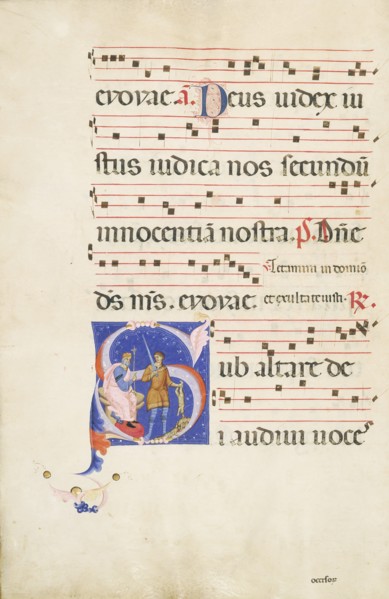 euouae. a. Deus iudex iu
stus iudica nos secundū
innocentiā nostra. P. Dñe
Letamini in domino
ds ñrs. euouae. et exultate iusti. Re.
Sub altare de
i audiui uoces